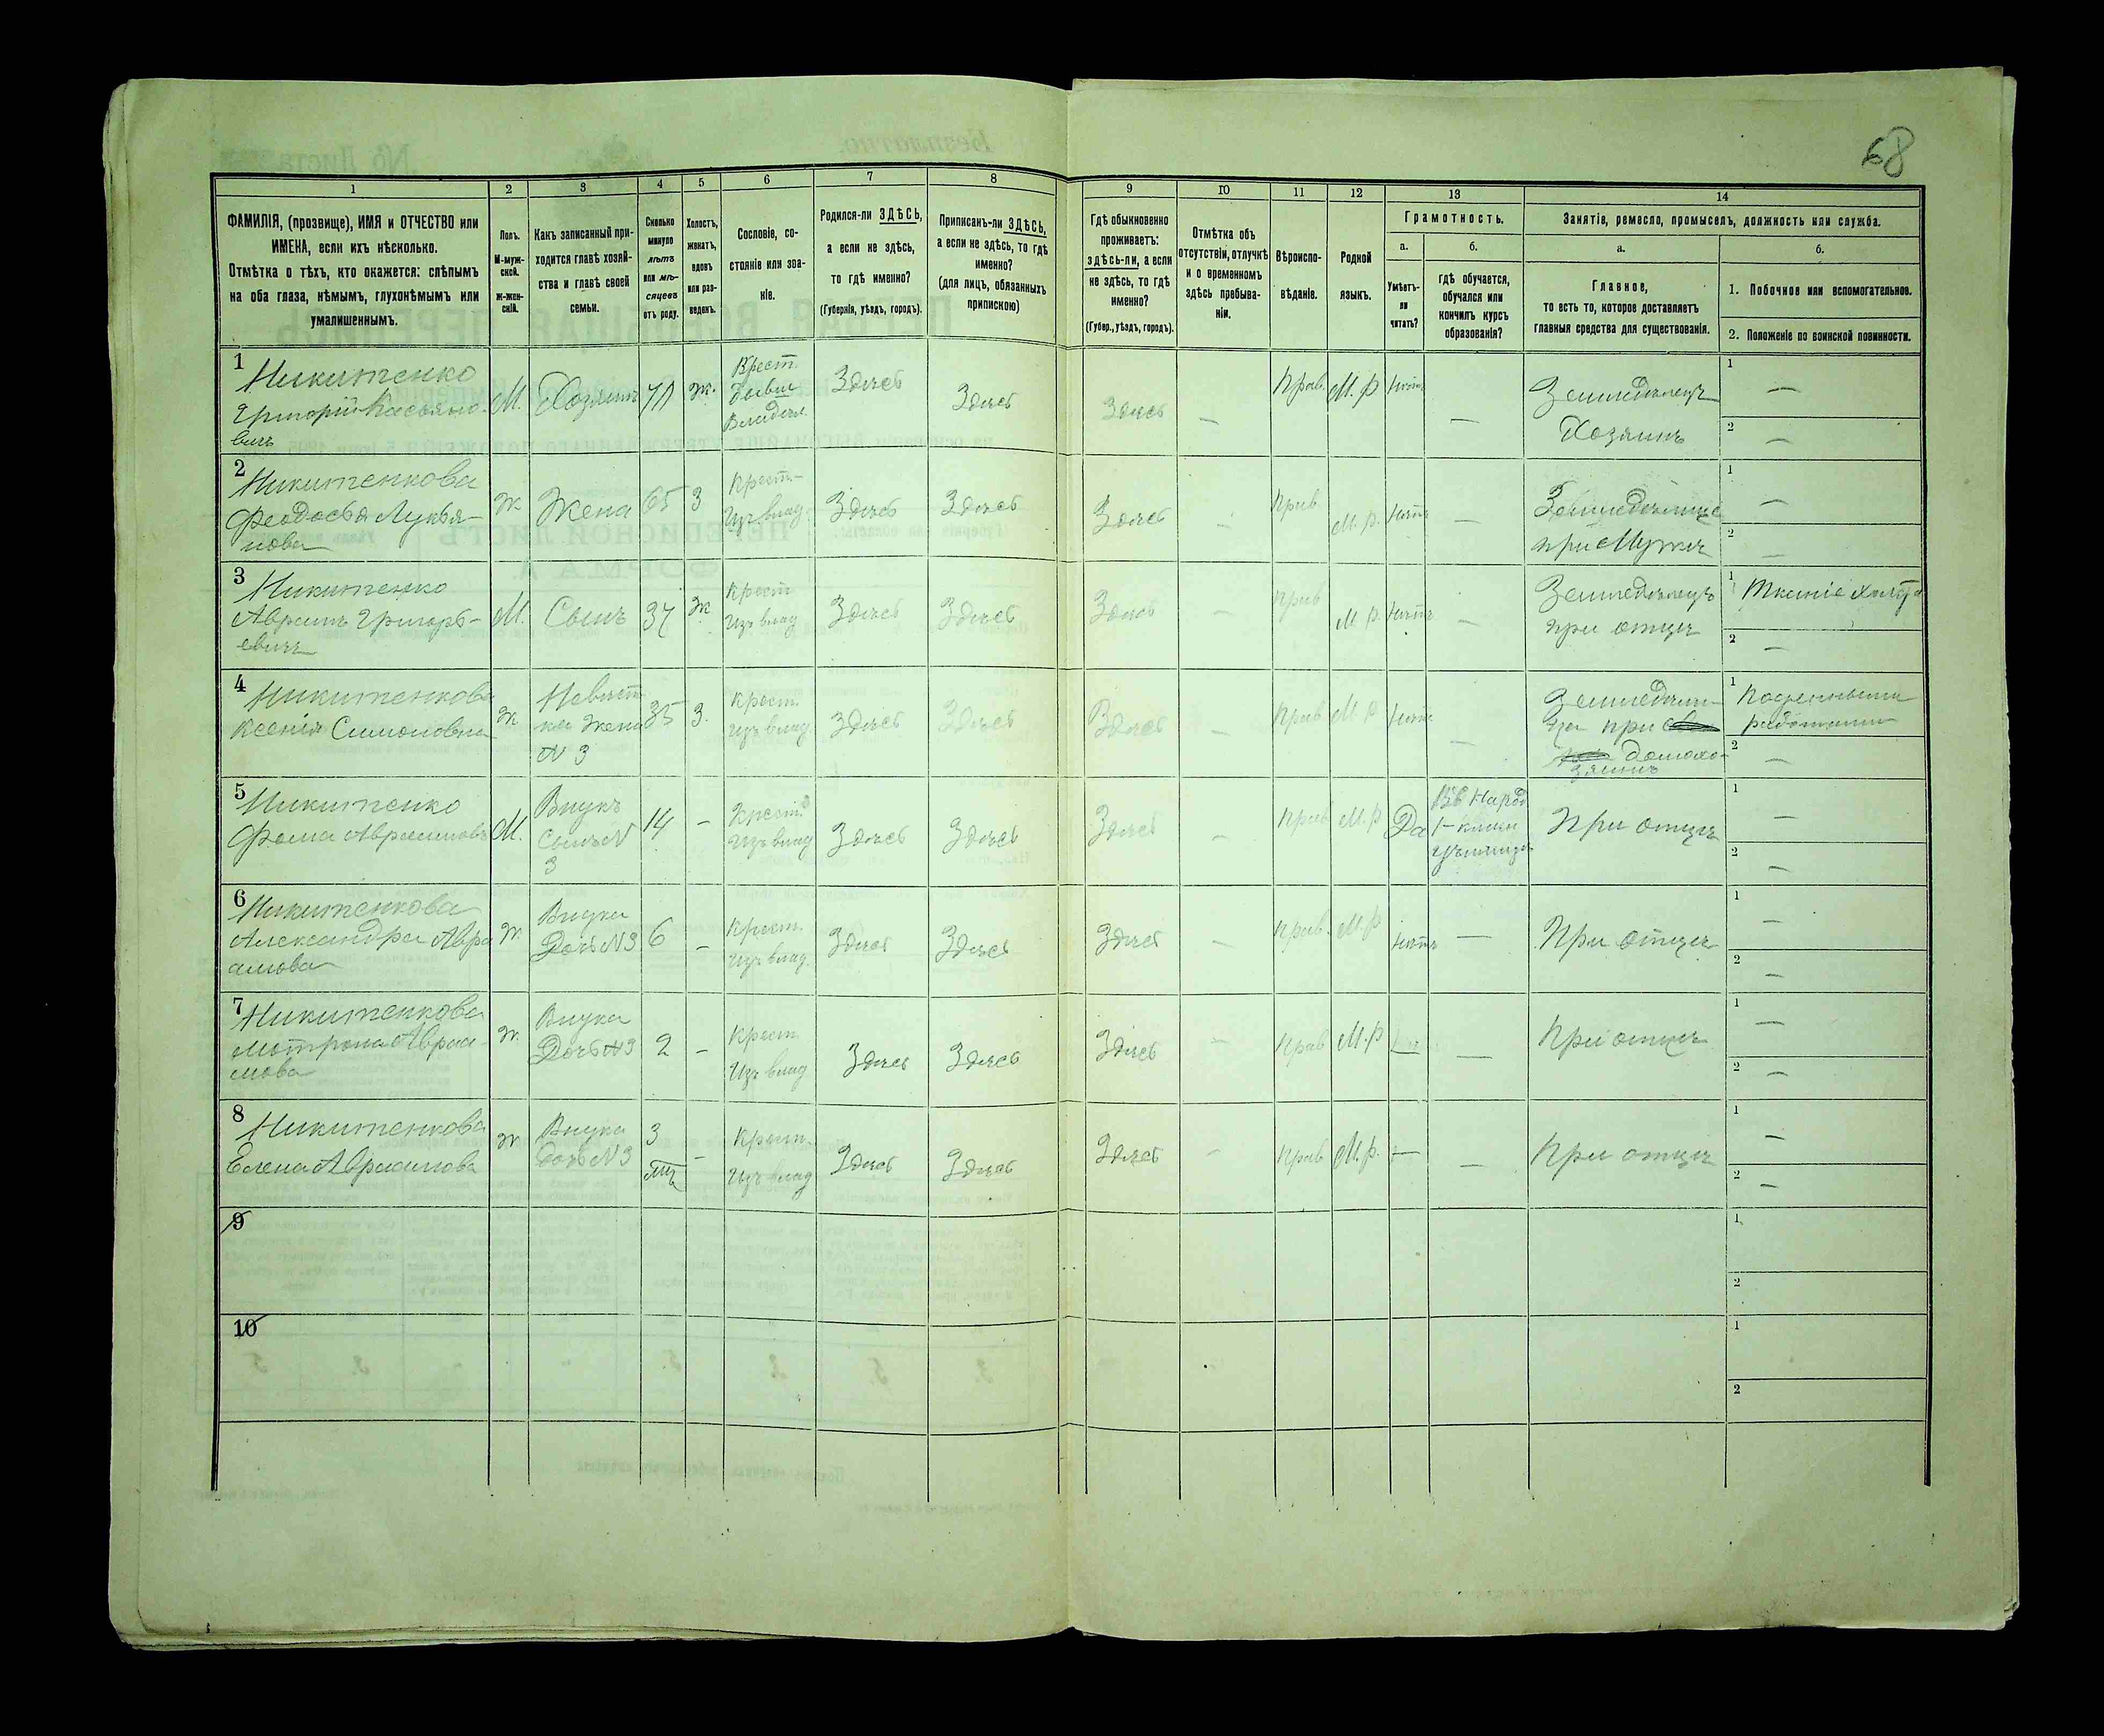 68
1 2 3 4 5 6 7 8 9 10 11 12 13 14
ФАМИЛІЯ, (прозвище), ИМЯ и ОТЧЕСТВО или
ИМЕНА, если ихъ нѣсколько.
Отмѣтка о тѣхъ, кто окажется: слѣпымъ
на оба глаза, нѣмымъ, глухонѣмымъ или
умалишеннымъ.
Полъ.
М-муж-
ской.
ж-жен-
скій.
Какъ записанный при-
ходится главѣ хозяй-
ства и главѣ своей
семьи.
Сколько
минуло
лѣтъ
или мѣ-
сяцевъ
отъ роду.
Холостъ,
женатъ,
вдовъ
или раз-
веденъ.
Сословіе, со-
стояніе или зва-
ніе.
Родился-ли ЗДѢСЬ,
а если не здѣсь,
то гдѣ именно?
(Губернія, уѣздъ, городъ).
Приписанъ-ли ЗДѢСЬ,
а если не здѣсь, то гдѣ
именно?
(для лицъ, обязанныхъ
припискою)
Гдѣ обыкновенно
проживаетъ:
здѣсь-ли, а если
не здѣсь, то гдѣ
именно?
(Губер., уѣздъ, городъ).
Отмѣтка объ
отсутствіи, отлучкѣ
и о временномъ
здѣсь пребыва-
ніи.
Вѣроиспо-
вѣданіе.
Родной
языкъ.
Грамотность.
а.
Умѣетъ-
ли
читать?
б.
гдѣ обучается,
обучался или
кончилъ курсъ
образованія?
Занятіе, ремесло, промыселъ, должность или служба.
а.
Главное,
то есть то, которое доставляетъ
главныя средства для существованія.
б.
1. Побочное или вспомогательное.
2. Положеніе по воинской повинности.
1
Никитенко
Григорій Касьяно-
вичъ
М. Хозяинъ 70 ж.
Крест.
бывш
Владѣл.
Здѣсь Здѣсь Здѣсь — Прав. М. р нѣтъ —
Земледѣлецъ
Хозяинъ
1 —
2 —
2
Никитенкова
Феодосья Лукья-
нова
Ж Жена 65 З
Крест-
Изъ влад.
Здѣсь Здѣсь Здѣсь — Прав М. р. нѣтъ —
Земледѣлица
при Мужѣ
1 —
2 —
3
Никитенко
Авраамъ Григорь-
евичъ
М. Сынъ 37 Ж
Крест
Изъ влад
Здѣсь Здѣсь Здѣсь — Прав М р. нѣтъ —
Земледѣлецъ
при отцѣ
1 Тканіе холста
2 —
4
Никитенкова
Ксенія Симоновна
Ж
Невѣст
ка Жена
N 3
35 З.
Крест.
Изъ влад.
Здѣсь Здѣсь Здѣсь Прав М. р нѣтъ —
Земледѣли-
ца при
домохо-
зяинѣ
1 Поденными
работами
2 —
5
Никитенко
Фома Авраамовъ
М.
Внукъ
Сынъ N
3
14 —
Крест.
Изъ влад
Здѣсь Здѣсь Здѣсь — Прав М. р Да
Въ Народ
училищѣ
При отцѣ
1 —
2 —
6
Никитенкова
Александра Авра
амова
Ж.
Внука
Дочь N 3
6 —
Крест.
Изъ влад.
Здѣсь Здѣсь Здѣсь — Прав. М. р нѣтъ —
При отцѣ
1 —
2 —
7
Никитенкова
Мотрона Авраа-
мова
Ж.
Внука
Дочь N 3
2 —
Крест.
Изъ влад
Здѣсь Здѣсь Здѣсь — Прав М. р —
При отцѣ
1 —
2 —
8
Никитенкова
Елена Авраамова
Ж
Внука
Дочь N 3
3
мц
—
Крест.
Изъ влад
Здѣсь Здѣсь Здѣсь — Прав М. р. — —
При отцѣ
1 —
2 —
9
1
2
10
1
2